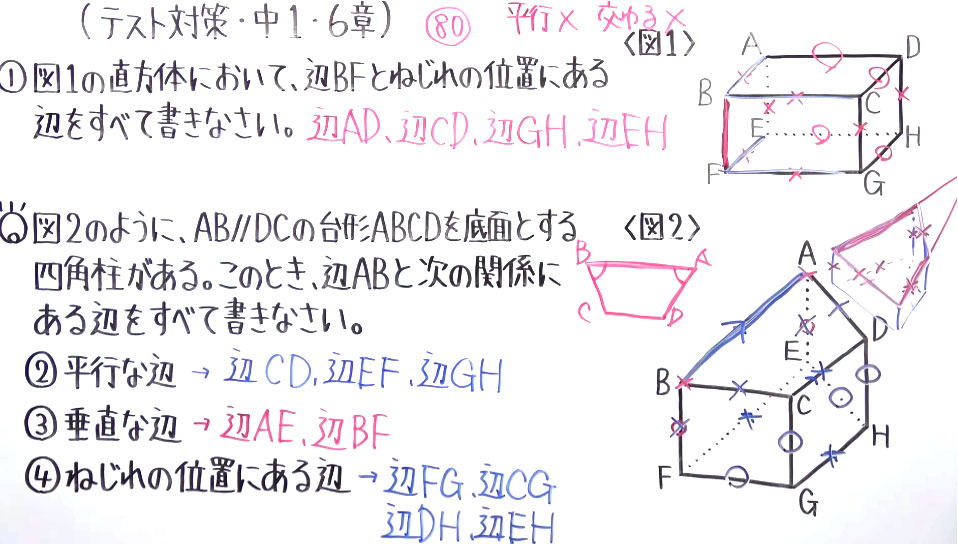 (テスト対策・中1・6章) 80 平行× 交わる×
①図1の直方体において、辺BFとねじれの位置にある
辺をすべて書きなさい。辺AD、辺CD、辺GH、辺EH
〈図1〉
A
D
B
C
E
H
F
G
図2のように、AB//DCの台形ABCDを底面とする
四角柱がある。このとき、辺ABと次の関係に
ある辺をすべて書きなさい。
②平行な辺→辺CD、辺EF、辺GH
③垂直な辺→辺AE、辺BF
④ねじれの位置にある辺→辺FG、辺CG
辺DH、辺EH
B
A
C
D
〈図2〉
A
D
E
B
C
H
F
G